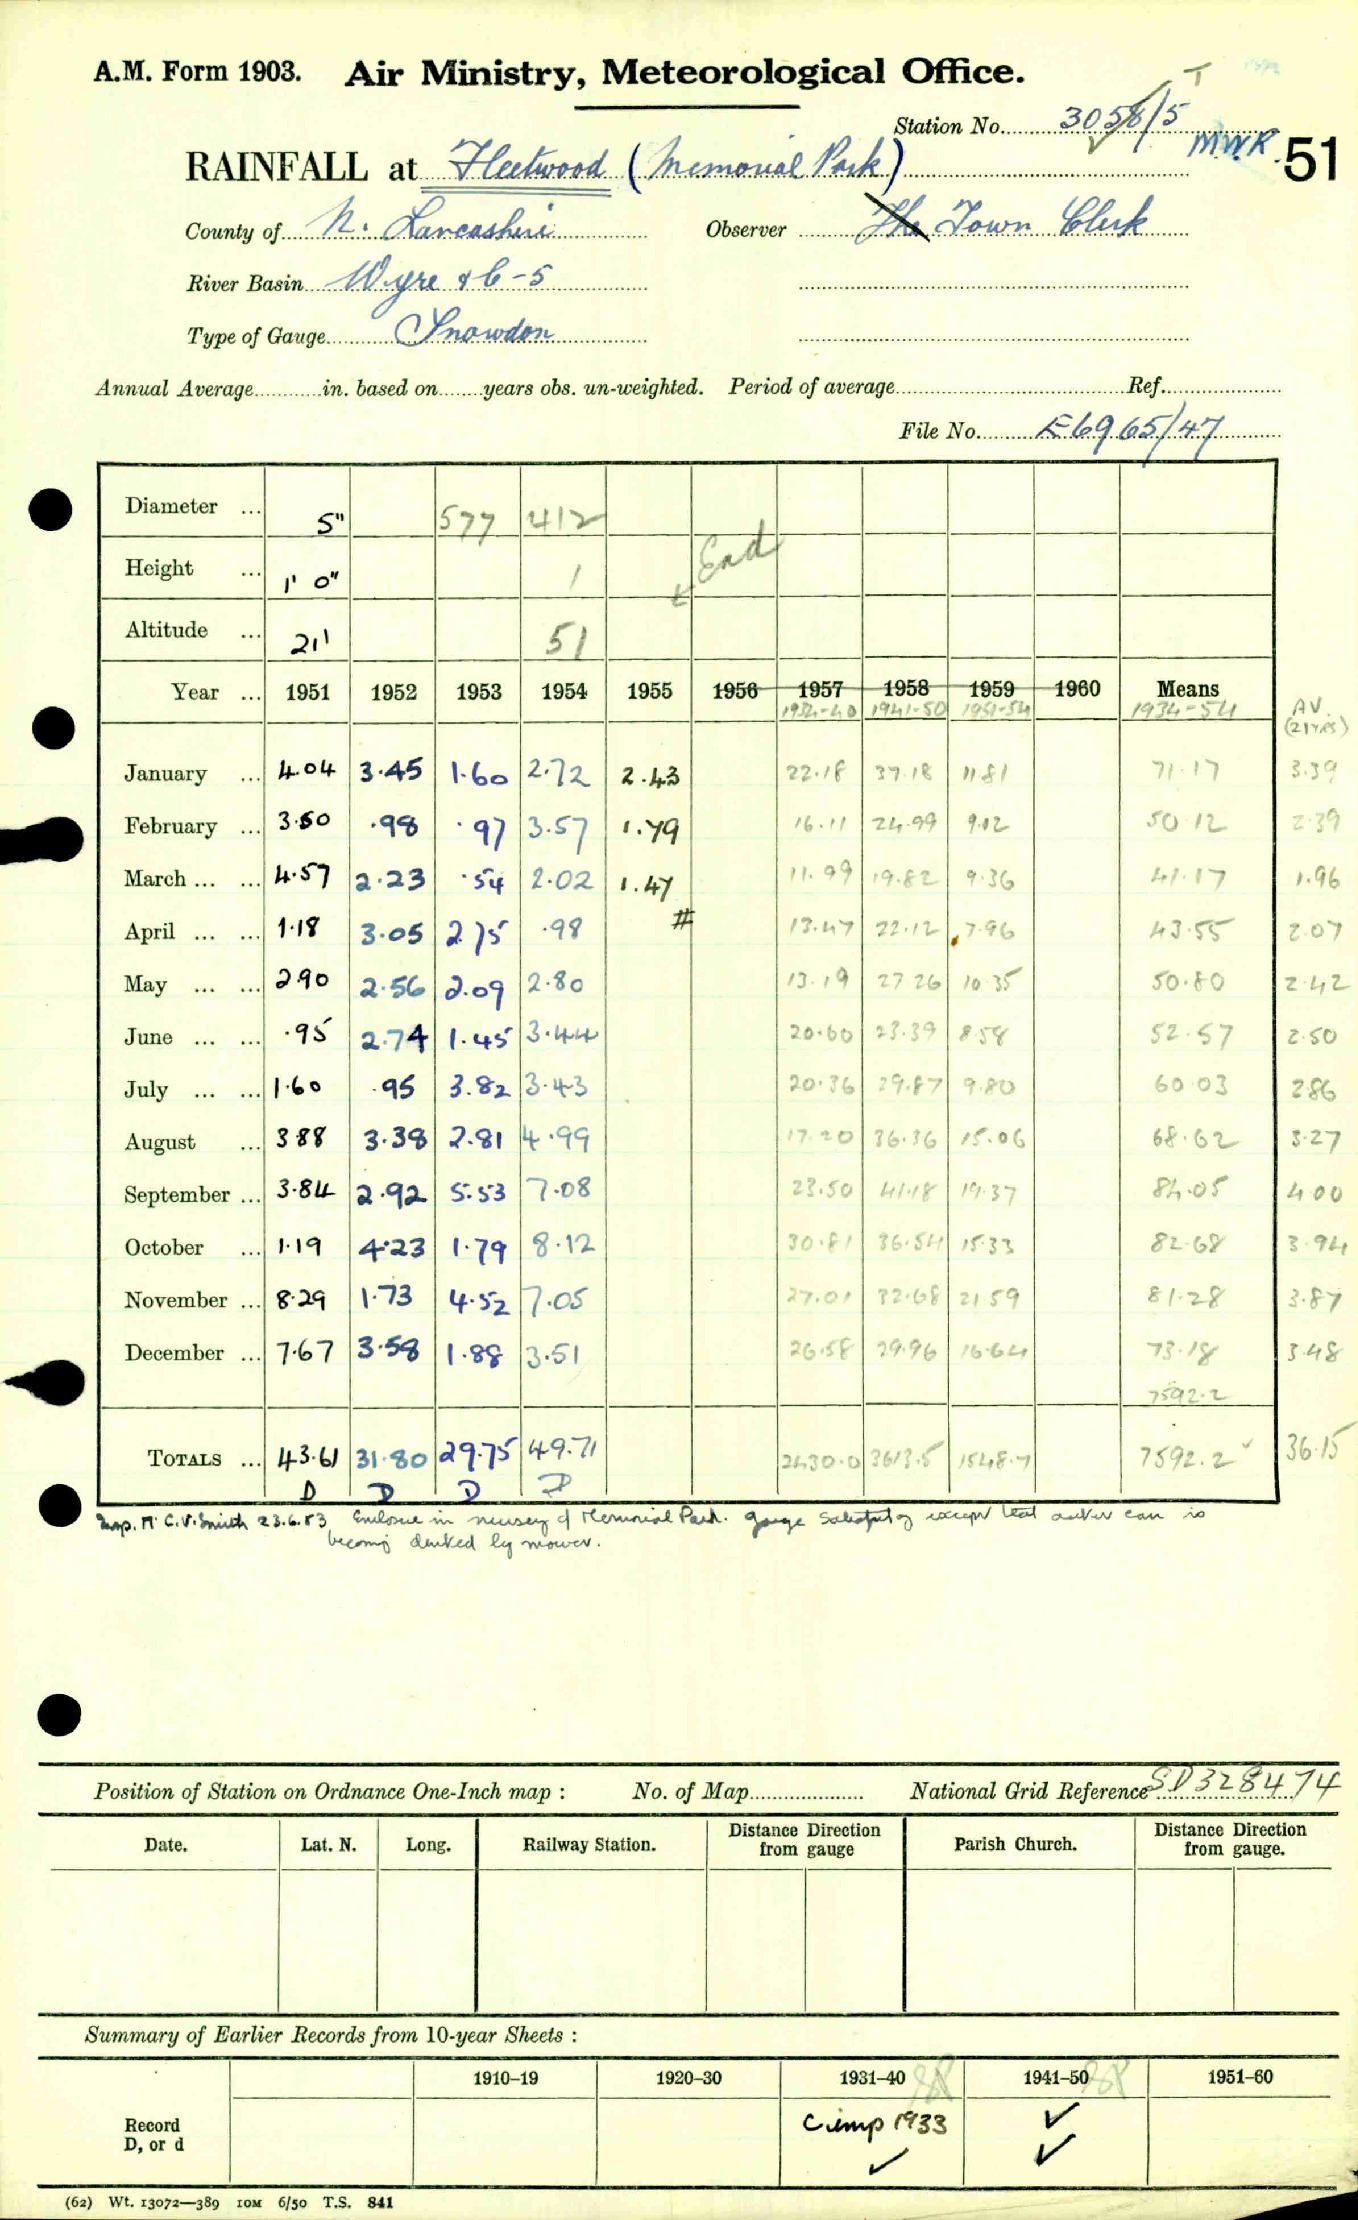 A.M. Form 1903. Air Ministry, Meteorological Office.
T
Station No. 3058/5
M.W.R. 51
RAINFALL at Fleetwood (Memorial Park)
County of N. Lancashire Observer The Town Clerk
River Basin Wyre & C-5
Type of Gauge Snowdon
Annual Average in. based on years obs. un-weighted. Period of average Ref.
File No. E6965/47
Diameter ... 5" 577 412
End
Height ... 1' 0" 1
Altitude ... 21' 51
Year ... 1951 1952 1953 1954 1955 1956 1957 1958 1959 1960 Means
1934-40 1941-50 1951-54 1934-54 AV. (21 yrs)
January ... 4.04 3.45 1.60 2.72 2.43 22.18 37.18 11.81 71.17 3.39
February ... 3.50 .98 .97 3.57 1.79 16.11 24.99 9.02 50.12 2.39
March ... ... 4.57 2.23 .54 2.02 1.47 11.99 19.82 9.36 41.17 1.96
April ... ... 1.18 3.05 2.75 .98 # 13.47 22.12 7.96 43.55 2.07
May ... ... 2.90 2.56 2.09 2.80 13.19 27.26 10.35 50.80 2.42
June ... ... .95 2.74 1.45 3.44 20.60 23.39 8.58 52.57 2.50
July ... ... 1.60 .95 3.82 3.43 20.36 29.87 9.80 60.03 2.86
August ... 3.88 3.38 2.81 4.99 17.20 36.36 15.06 68.62 3.27
September ... 3.84 2.92 5.53 7.08 23.50 41.18 19.37 84.05 4.00
October ... 1.19 4.23 1.79 8.12 30.81 36.54 15.33 82.68 3.94
November ... 8.29 1.73 4.52 7.05 27.01 32.68 21.59 81.28 3.87
December ... 7.67 3.58 1.88 3.51 26.58 29.96 16.64 73.18 3.48
7592.2
TOTALS ... 43.61 31.80 29.75 49.71 2430.0 3613.5 1548.7 7592.2 36.15
D D D D
Insp. Mr C.V. Smith 23.6.53 Enclosure in nursery of Memorial Park. gauge satisfactory except that outer can is
becoming dented by mower.
Position of Station on Ordnance One-Inch map : No. of Map National Grid Reference SD328474
Date. Lat. N. Long. Railway Station. Distance Direction from gauge Parish Church. Distance Direction from gauge.
Summary of Earlier Records from 10-year Sheets :
1910-19 1920-30 1931-40 1941-50 1951-60
Record D, or d 1933 ✓
✓ ✓
(62) Wt. 13072—389 10M 6/50 T.S. 841